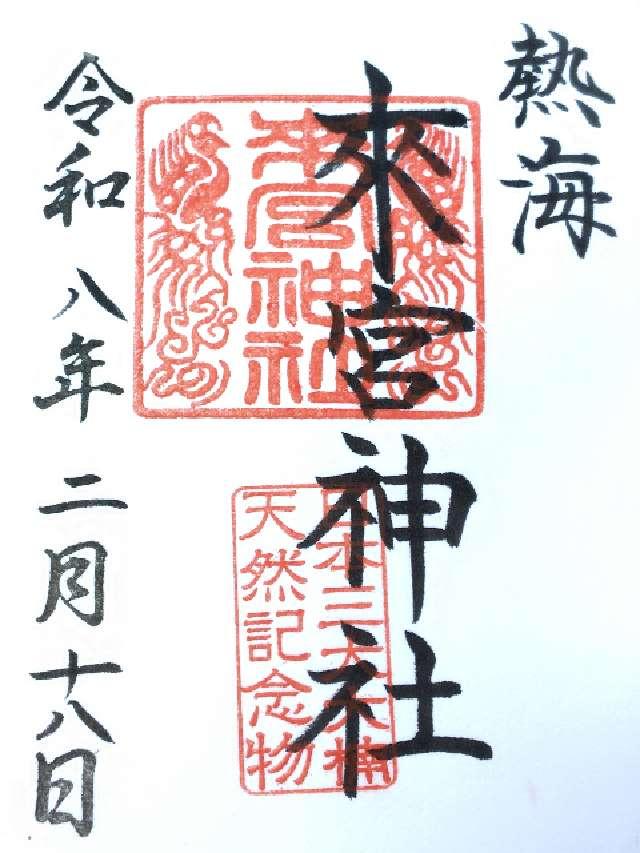 熱海
來宮神社
來宮神社
日本三大大楠
天然記念物
令和八年二月十八日